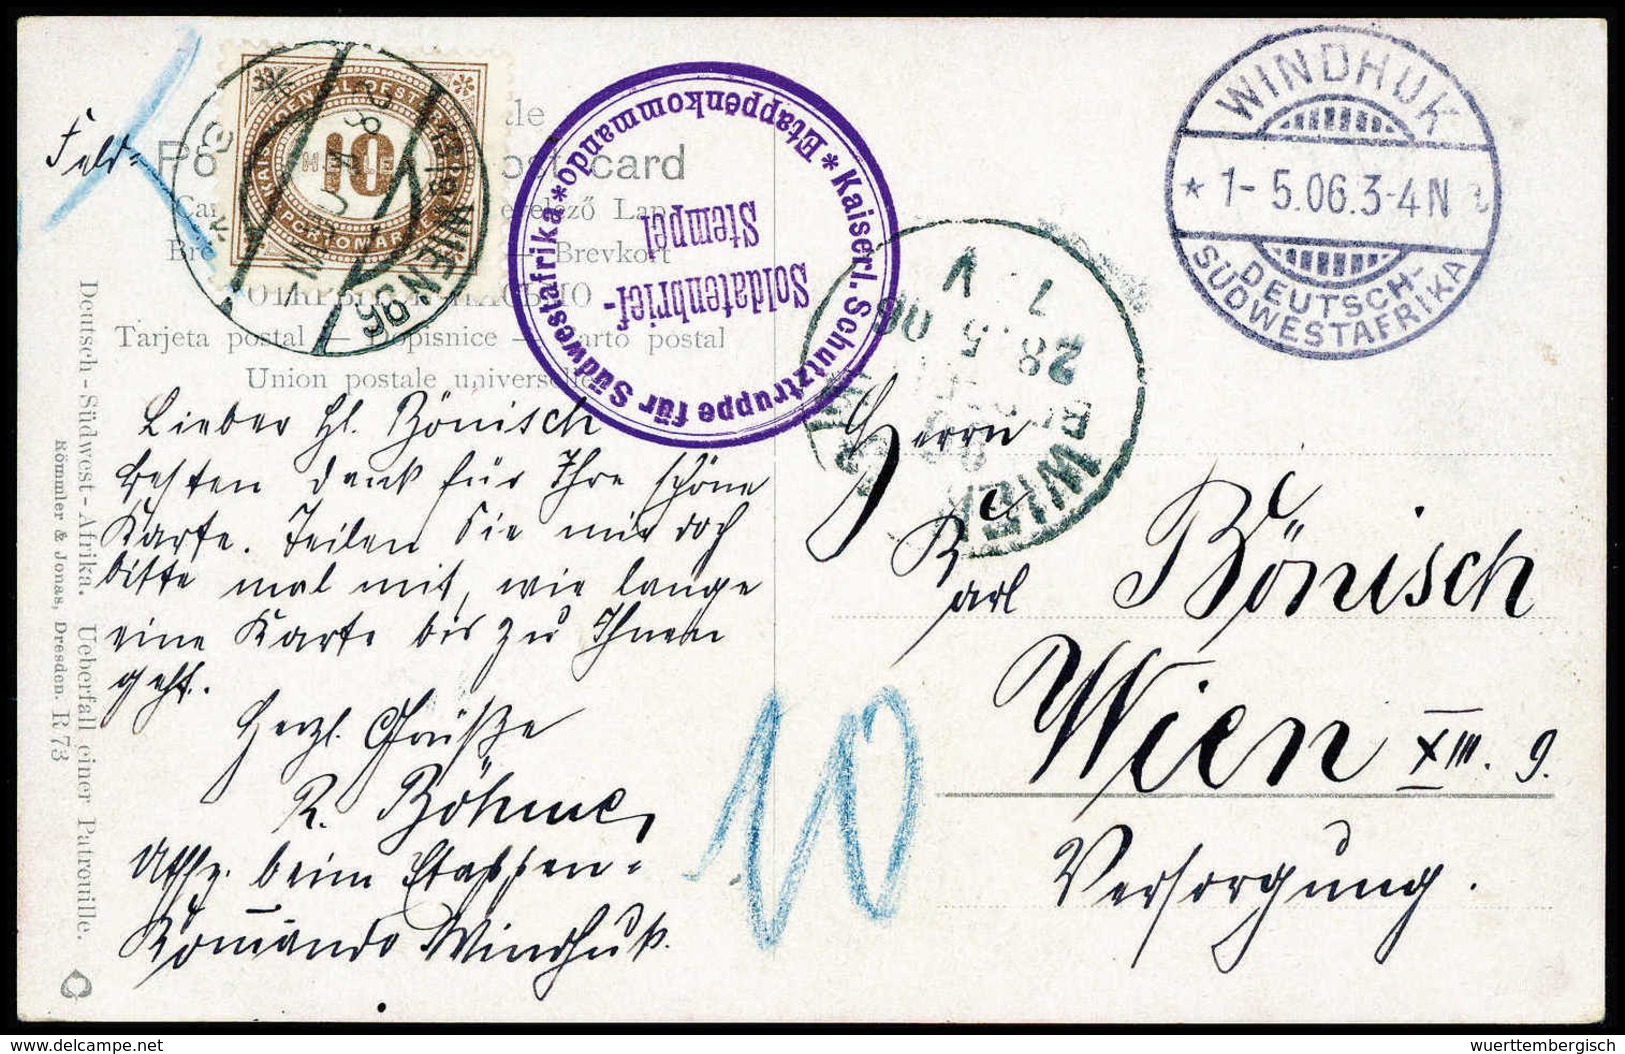 Feld-
Post card
Brevkort
Tarjeta postal — Dopisnice — Carto postal
Union postale universelle
KAISERL. KÖNIGL. OESTERR.
10
HELLER
PORTOMARKE
WIEN 96
* Kaiserl. Schutztruppe für Südwestafrika * Etappenkommando
Soldatenbrief-
Stempel
WINDHUK
* 1-5.06.3-4N
DEUTSCH-
SÜDWESTAFRIKA
28.5.06
V
WIEN
Lieber H. Bönisch
besten Dank für Ihre schöne
Karte. Teilen Sie mir doch
bitte mal mit, wie lange
eine Karte bis zu Ihnen
geht.
Herzl. Grüße
R. Böhme,
beim Etappen-
Kommando Windhuk.
Herrn
Karl Bönisch
Wien XIII. 9.
Versorgung.
10
Deutsch-Südwest-Afrika. Ueberfall einer Patrouille.
Römmler & Jonas, Dresden. R 73
delcampe.net
wuerttembergisch